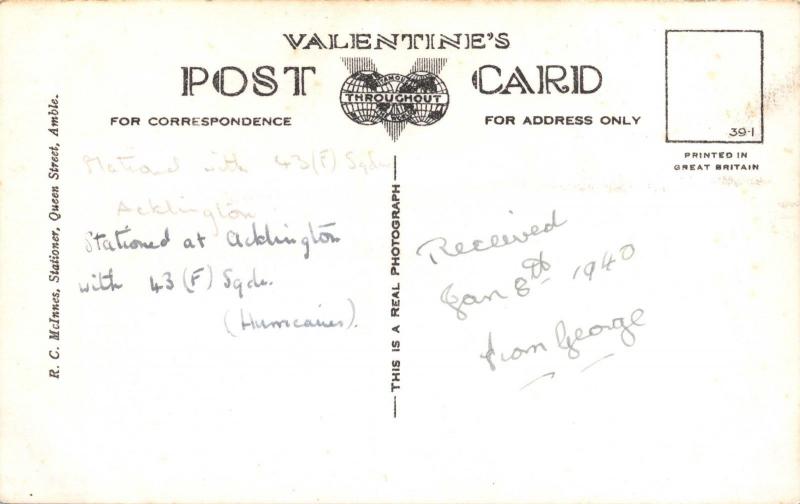 VALENTINE'S
POST CARD
FAMOUS
THROUGHOUT
WORLD
FOR CORRESPONDENCE
FOR ADDRESS ONLY
39-1
PRINTED IN
GREAT BRITAIN
R. C. McInnes, Stationer, Queen Street, Amble.
with 43 (F) Sqdn
Acklington
Stationed at Acklington
with 43 (F) Sqdn.
(Hurricanes).
THIS IS A REAL PHOTOGRAPH
Received
Jan 8th 1940
from George